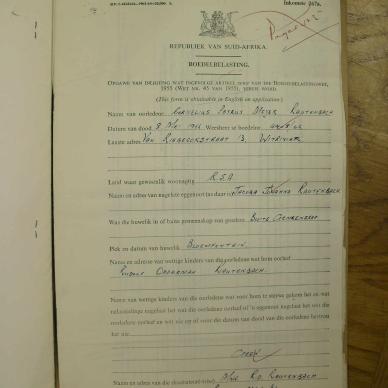 Inkomste 267a.
REPUBLIEK VAN SUID-AFRIKA.
BOEDELBELASTING.
OPGAWE VAN INLIGTING WAT INGEVOLGE ARTIKEL VAN DIE BOEDELBELASTINGWET,
1955 (WET NR. 45 VAN 1955), VEREIS WORD.
(This form is obtainable in English on application.)
Naam van oorledene: CORNELIUS PETRUS MEYER RAUTENBACH
Datum van dood 8 Weeskeer se boedelnr.
Laaste adres VAN RIEBEECKSTRAAT 13, WITRIVIER
Land waar gewoonlik woonagtig R.S.A
Naam en adres van nagelate eggenoot (as daar is) JACOBA JOHANNA RAUTENBACH
Was die huwelik in of buite gemeenskap van goedere BUITE GEMEENSKAP
Plek en datum van huwelik BLOEMFONTEIN
Name en adresse van wettige kinders van die oorledene wat hom oorleef
RAUTENBACH
Name van wettige kinders van die oorledene wat voor hom te sterwe gekom het en wat
nakomelinge nagelaat het wat hom oorleef of 'n eggenoot nagelaat het wat die
oorledene oorleef en wat nie op of voor die datum van dood van die oorledene hertrou
het nie
GEEN
Naam en adres van die eksekuteur(s) RAUTENBACH